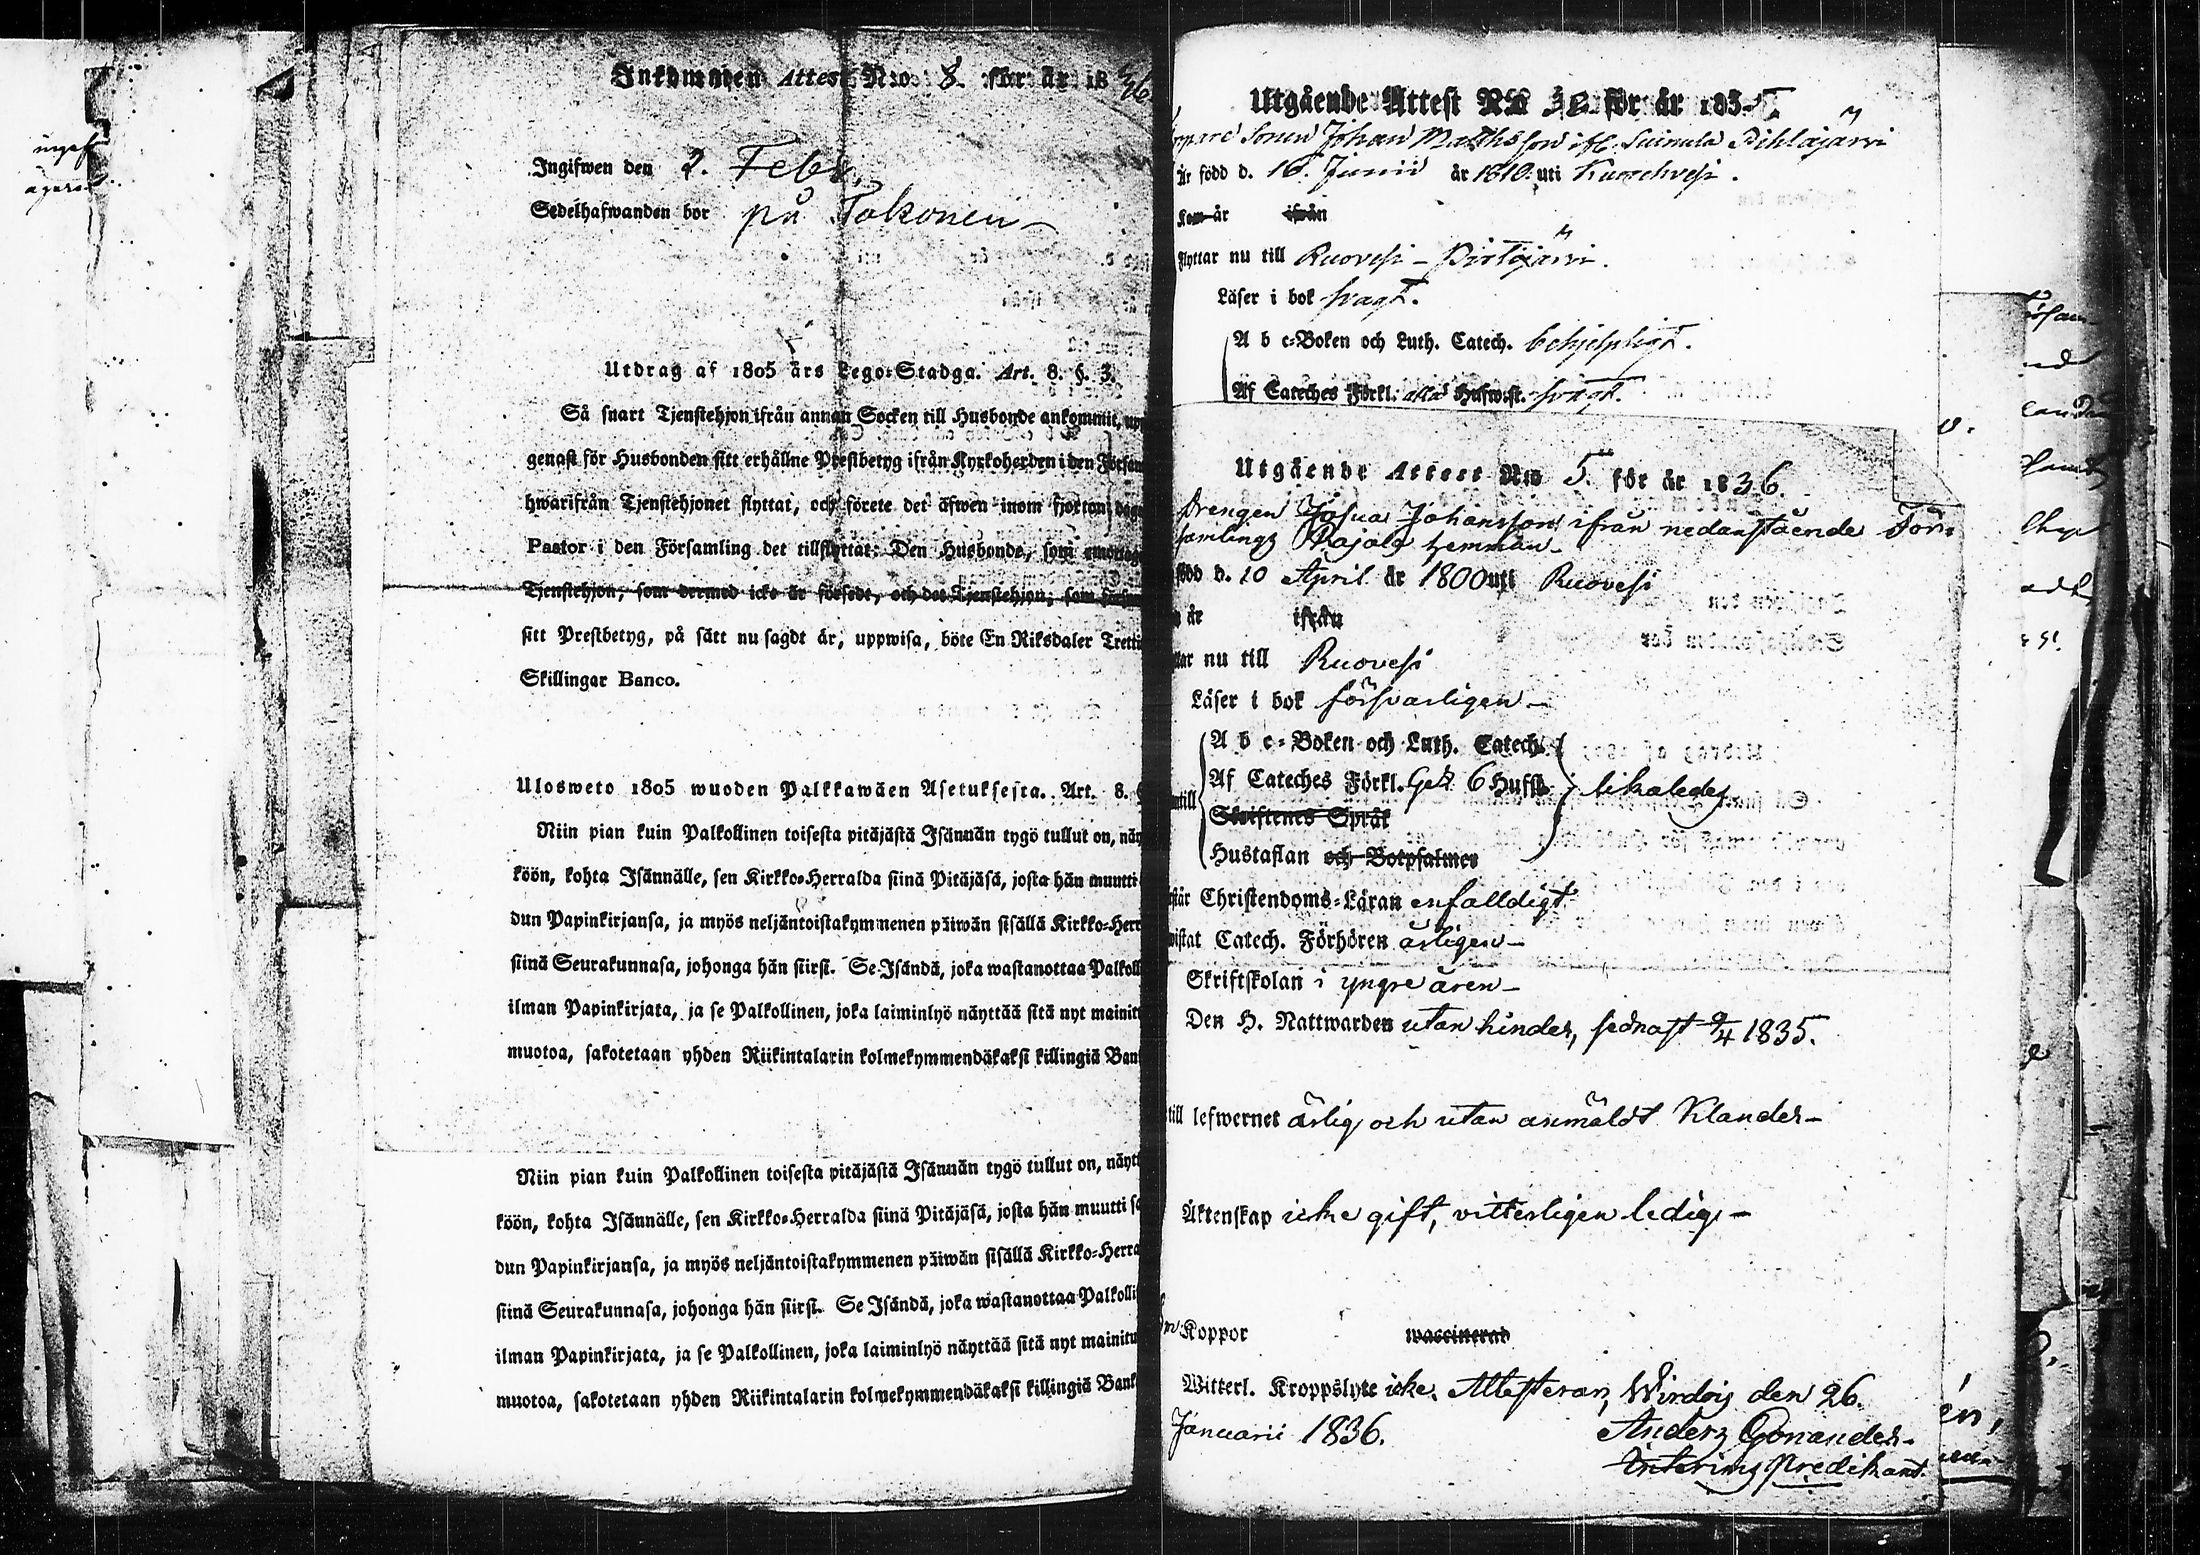 Inkommen Attest N:o 8. för år 1836
Ingifwen den 2. Febr.
Sedelhafwanden bor på Tokonen
Utdrag af 1805 års Lego-Stadga. Art. 8. §. 3.
Så snart Tjenstehjon ifrån annan Socken till Husbonde ankommit, upp
genast för Husbonden sitt erhållne Prestbetyg ifrån Kyrkoherden i den Församl
hwarifrån Tjenstehjonet flyttat, och förete det äfwen inom fjorton daga
Pastor i den Församling det tillflyttat: Den Husbonde, som emottag
Tjenstehjon, som dermed icke är försedt, och det Tjenstehjon, som försum
sitt Prestbetyg, på sätt nu sagdt är, uppwisa, böte En Riksdaler Tretti
Skillingar Banco.
Ulosweto 1805 wuoden Palkkawäen Asetuksesta. Art. 8. §
Niin pian kuin Palkollinen toisesta pitäjästä Isännän tygö tullut on, näy
köön, kohta Isännälle, sen Kirkko-Herralda siinä Pitäjäsä, josta hän muutti
dun Papinkirjansa, ja myös neljäntoistakymmenen päiwän sisällä Kirkko-Herr
siinä Seurakunnasa, johonga hän siirst. Se Isändä, joka wastanottaa Palkoll
ilman Papinkirjata, ja se Palkollinen, joka laiminlyö näyttää sitä nyt mainit
muotoa, sakotetaan yhden Riikintalarin kolmekymmendäkaksi killingiä Ban
Niin pian kuin Palkollinen toisesta pitäjästä Isännän tygö tullut on, näyt
köön, kohta Isännälle, sen Kirkko-Herralda siinä Pitäjäsä, josta hän muutti sa
dun Papinkirjansa, ja myös neljäntoistakymmenen päiwän sisällä Kirkko-Herra
siinä Seurakunnasa, johonga hän siirst. Se Isändä, joka wastanottaa Palkolli
ilman Papinkirjata, ja se Palkollinen, joka laiminlyö näyttää sitä nyt mainitu
muotoa, sakotetaan yhden Riikintalarin kolmekymmendäkaksi killingiä Bank
Utgående Attest N:o för år 183
Sonen Johan Mathsson ifr. Suinula Pihlajärvi
Är född d. 16. Junii år 1810. uti Kuorehvesi.
Kom år ifrån
Flyttar nu till Ruovesi – Pirtijärvi.
Läser i bok svagt.
A b c-Boken och Luth. Catech. behjelpligt.
Af Cateches Förkl. Hufwst. svagt.
Utgående Attest N:o 5. för år 1836.
Drengen Josua Johansson ifrån nedanstående För-
samlings Rajala hemman
född d. 10 April år 1800 uti Ruovesi
år ifrån
tar nu till Ruovesi
Läser i bok försvarligen
A b c-Boken och Luth. Catech.
Af Cateches Förkl. Gez. 6 Hufst. likaledes
Skriftenes Språk
Hustaflan och Botpsalmer
står Christendoms-Läran enfaldigt
wistat Catech. Förhören årligen
Skriftskolan i yngre åren
Den H. Nattwarden utan hinder, sednast 9/4 1835.
till lefwernet ärlig och utan anmäldt Klander
Äktenskap icke gift, vitterligen ledig
Koppor waccinerad
Witterl. Kroppslyte icke. Attesteras, Wirdois den 26.
Januarii 1836. Anders Gonander
Interims Predikant.